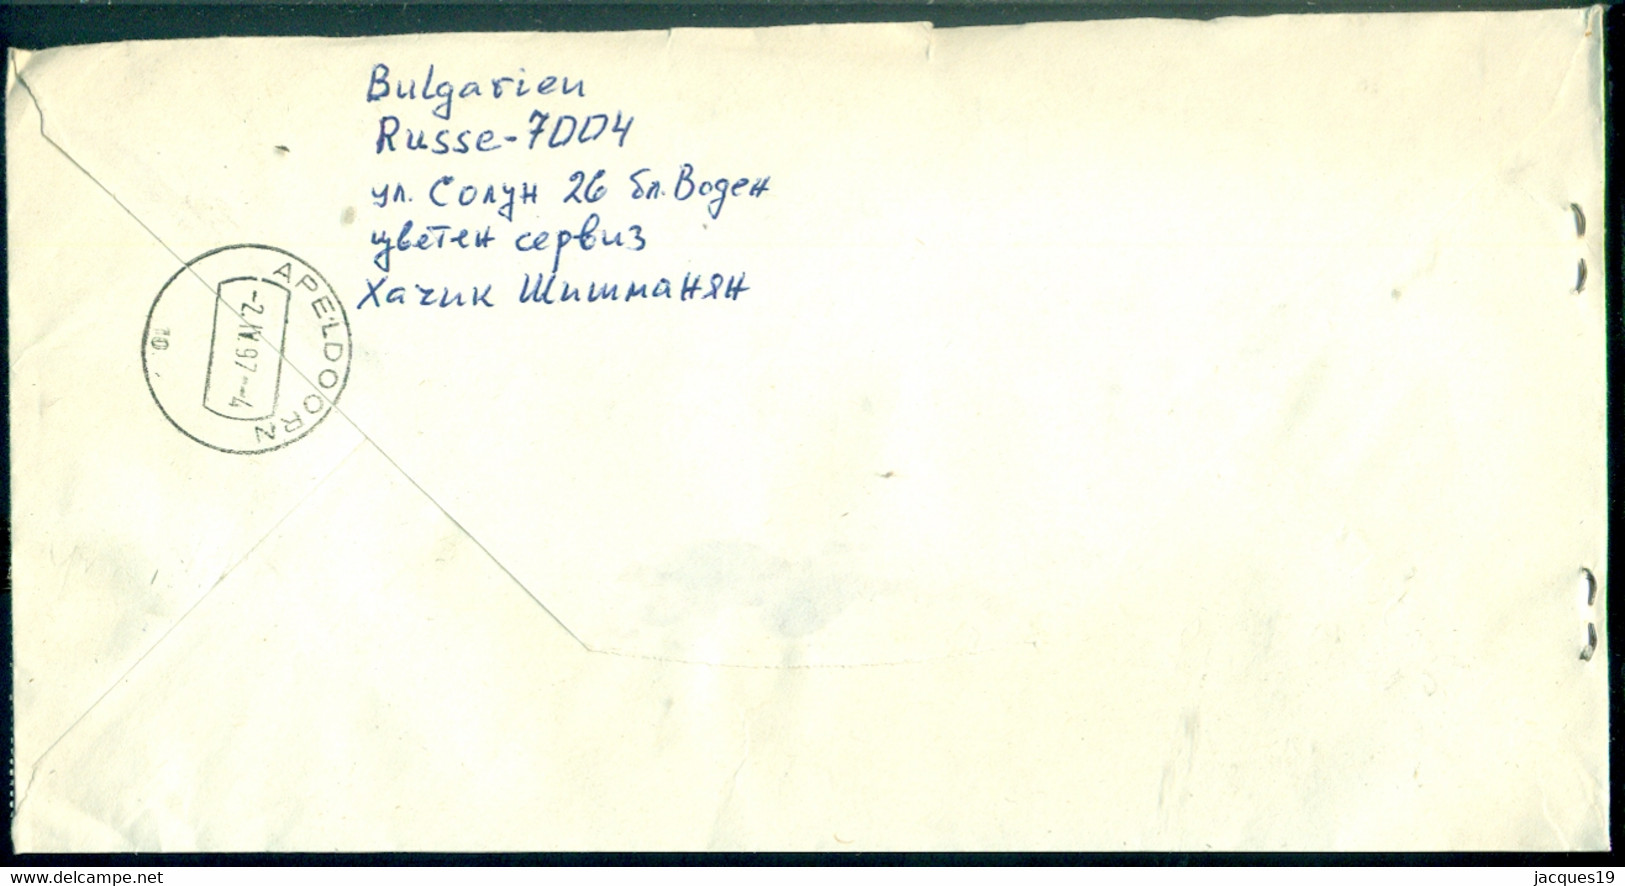 Bulgarien
Russe-7004
ул. Солун 26 бл. Воден
цветен сервиз
Хачик Шишманян
APELDOORN
-2.IV.97--4
10
www.delcampe.net
jacques19